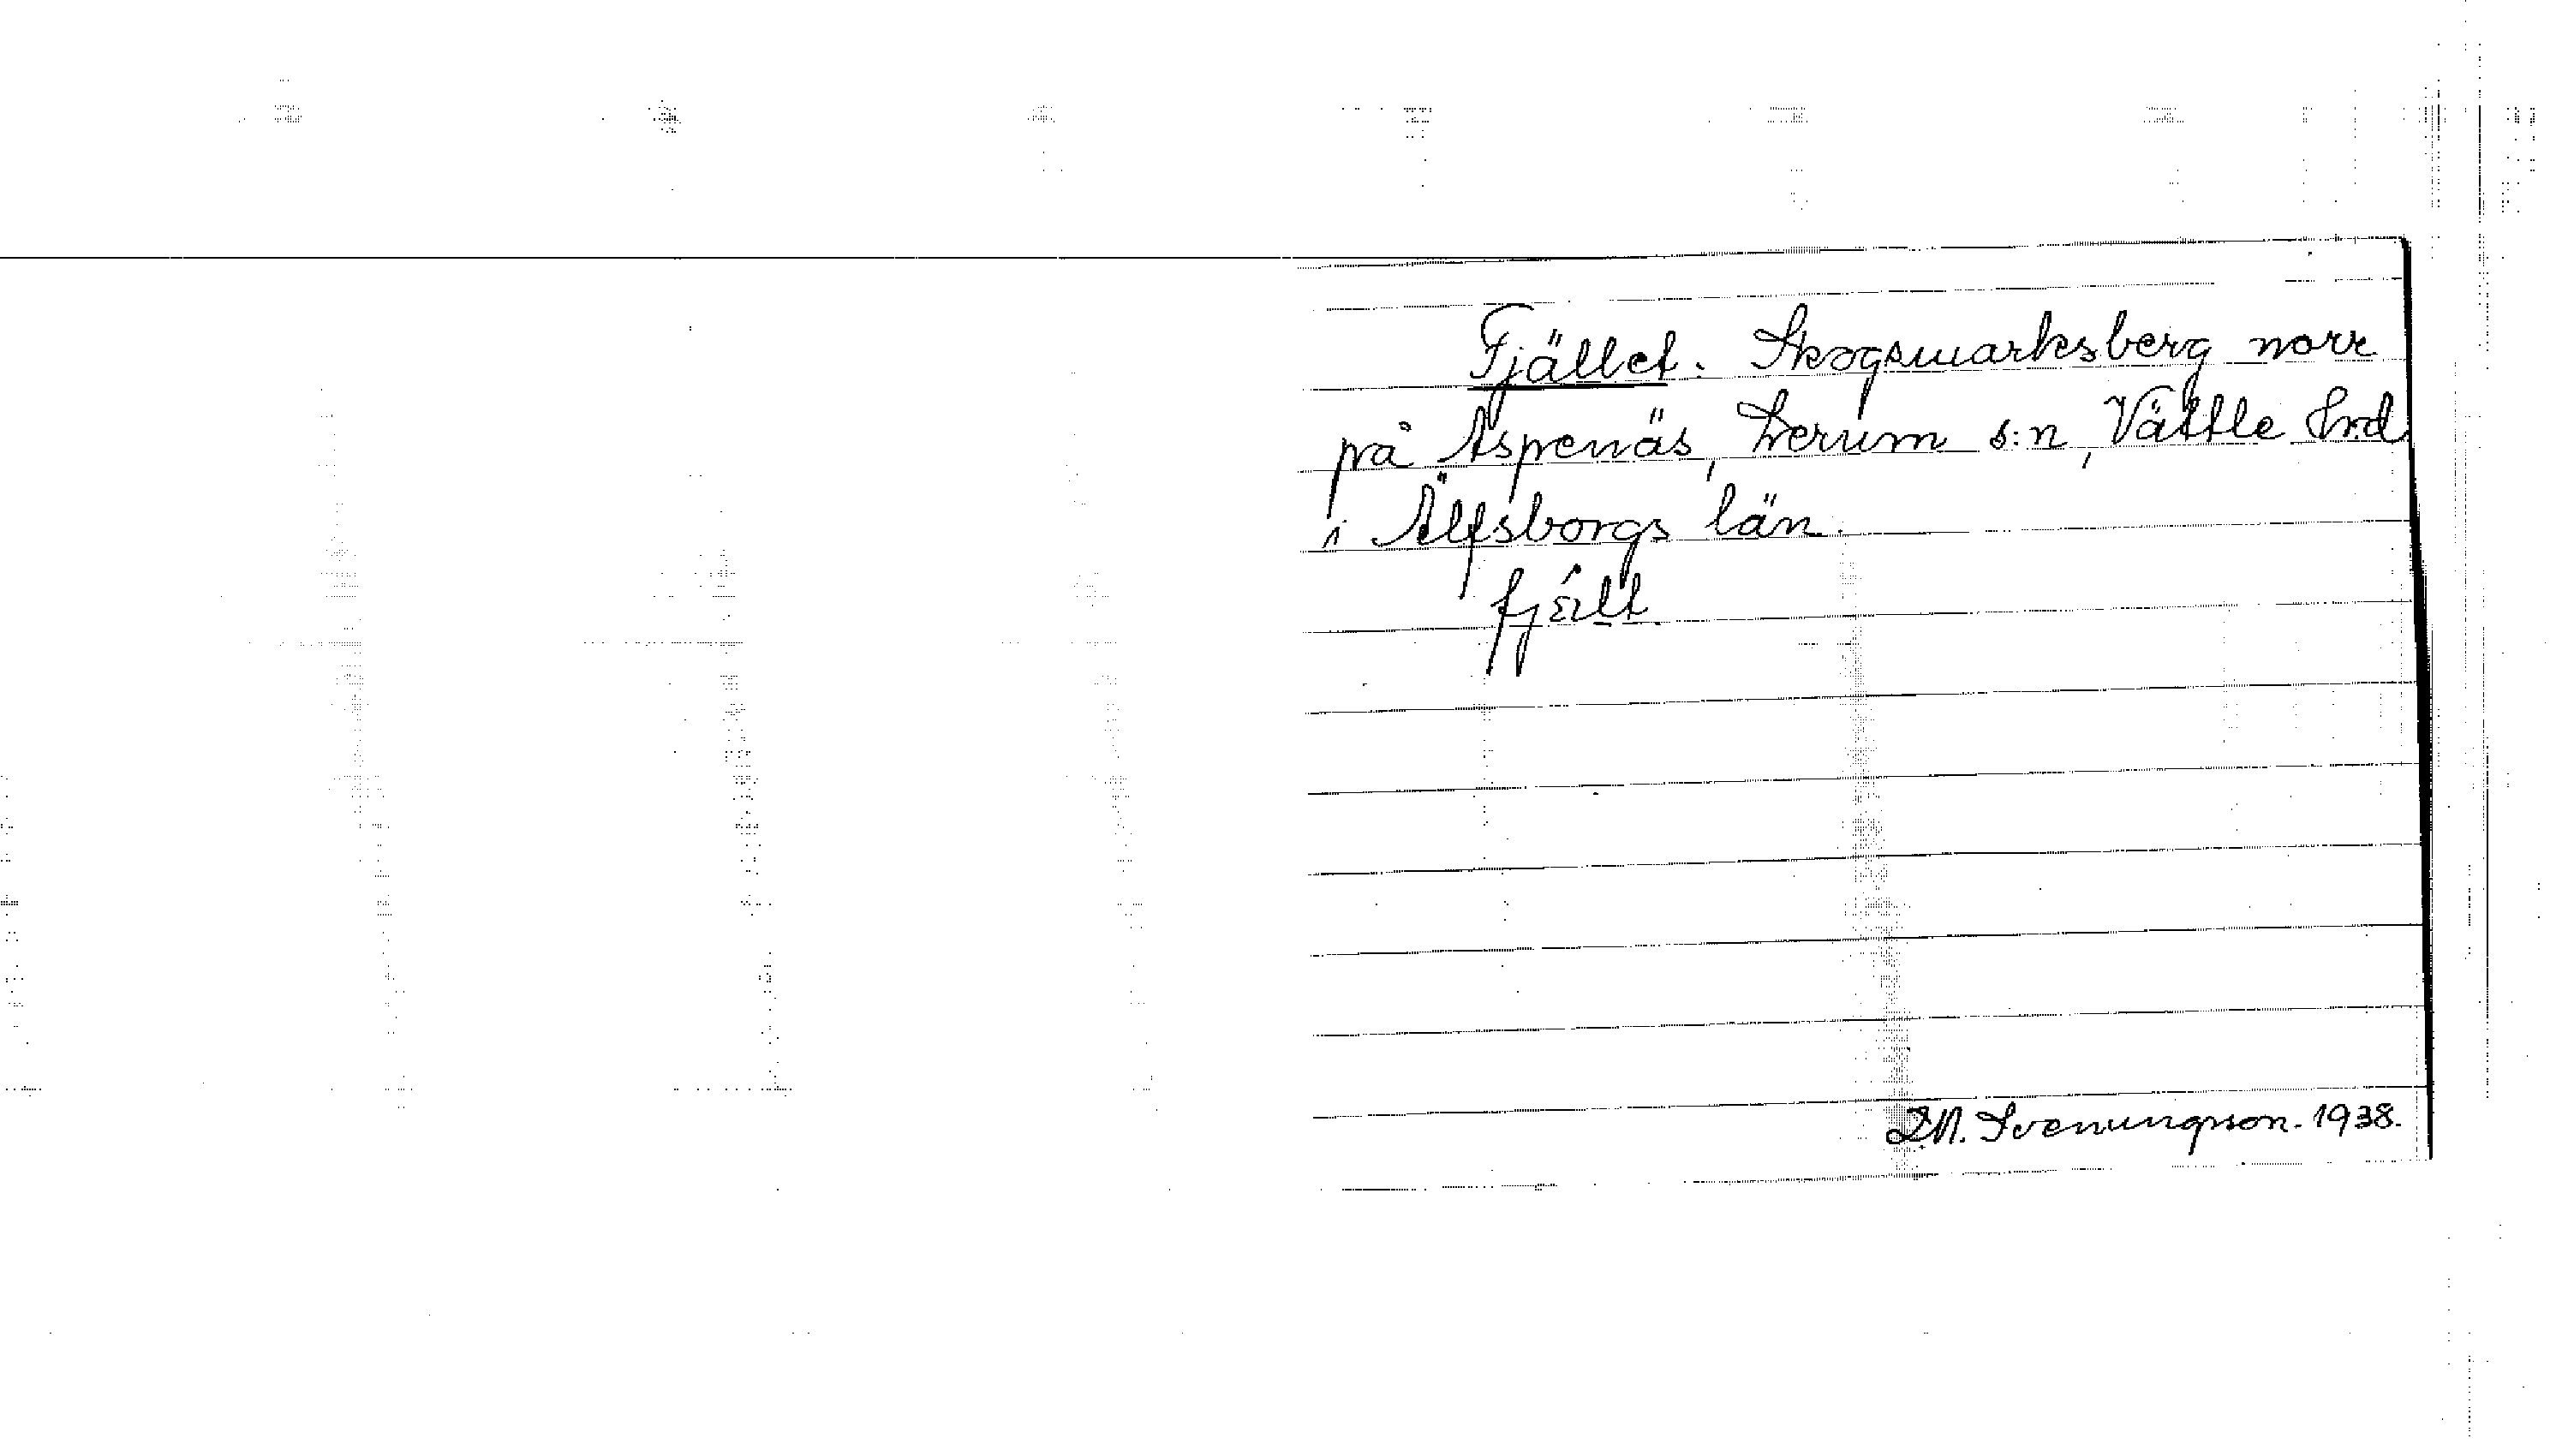 Fjället. Skogsmarksberg norr
på Aspenäs, Lerum s:n, Vättle Hrd
i Älfsborgs län.
fjället
D.N. Svenungsson. 1938.